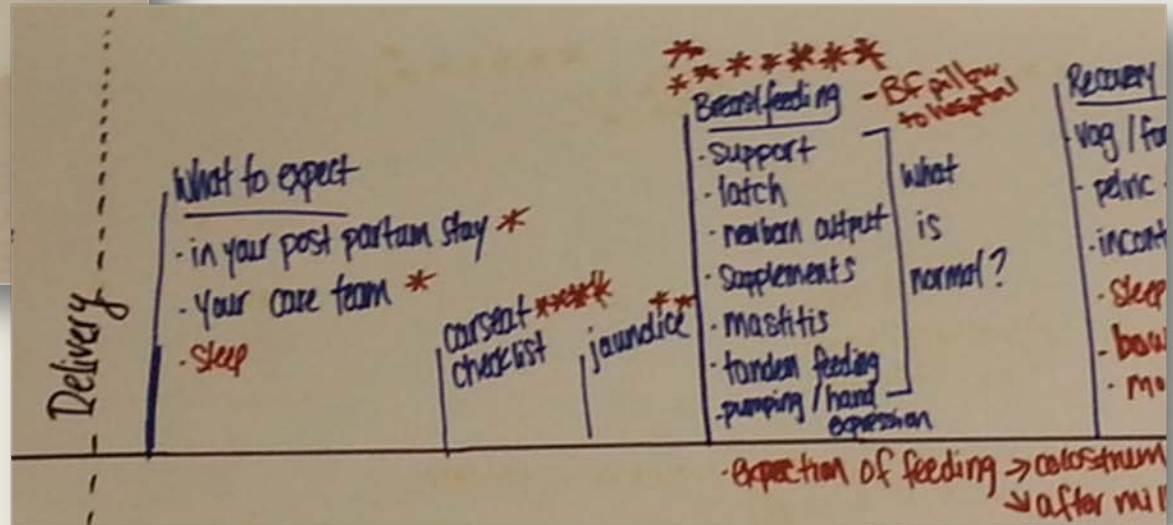 Delivery
What to expect
- in your post partum stay *
- your care team *
- sleep
carseat ****
checklist
jaundice **
*
* * * * * * *
Breastfeeding - BF pillow
to hospital
- support
- latch
- newborn output
- supplements
- mastitis
- tandem feeding
- pumping / hand
expression
what
is
normal?
Recovery
- vag /
- pelvic
- sleep
- expection of feeding → colostrum
↘ after